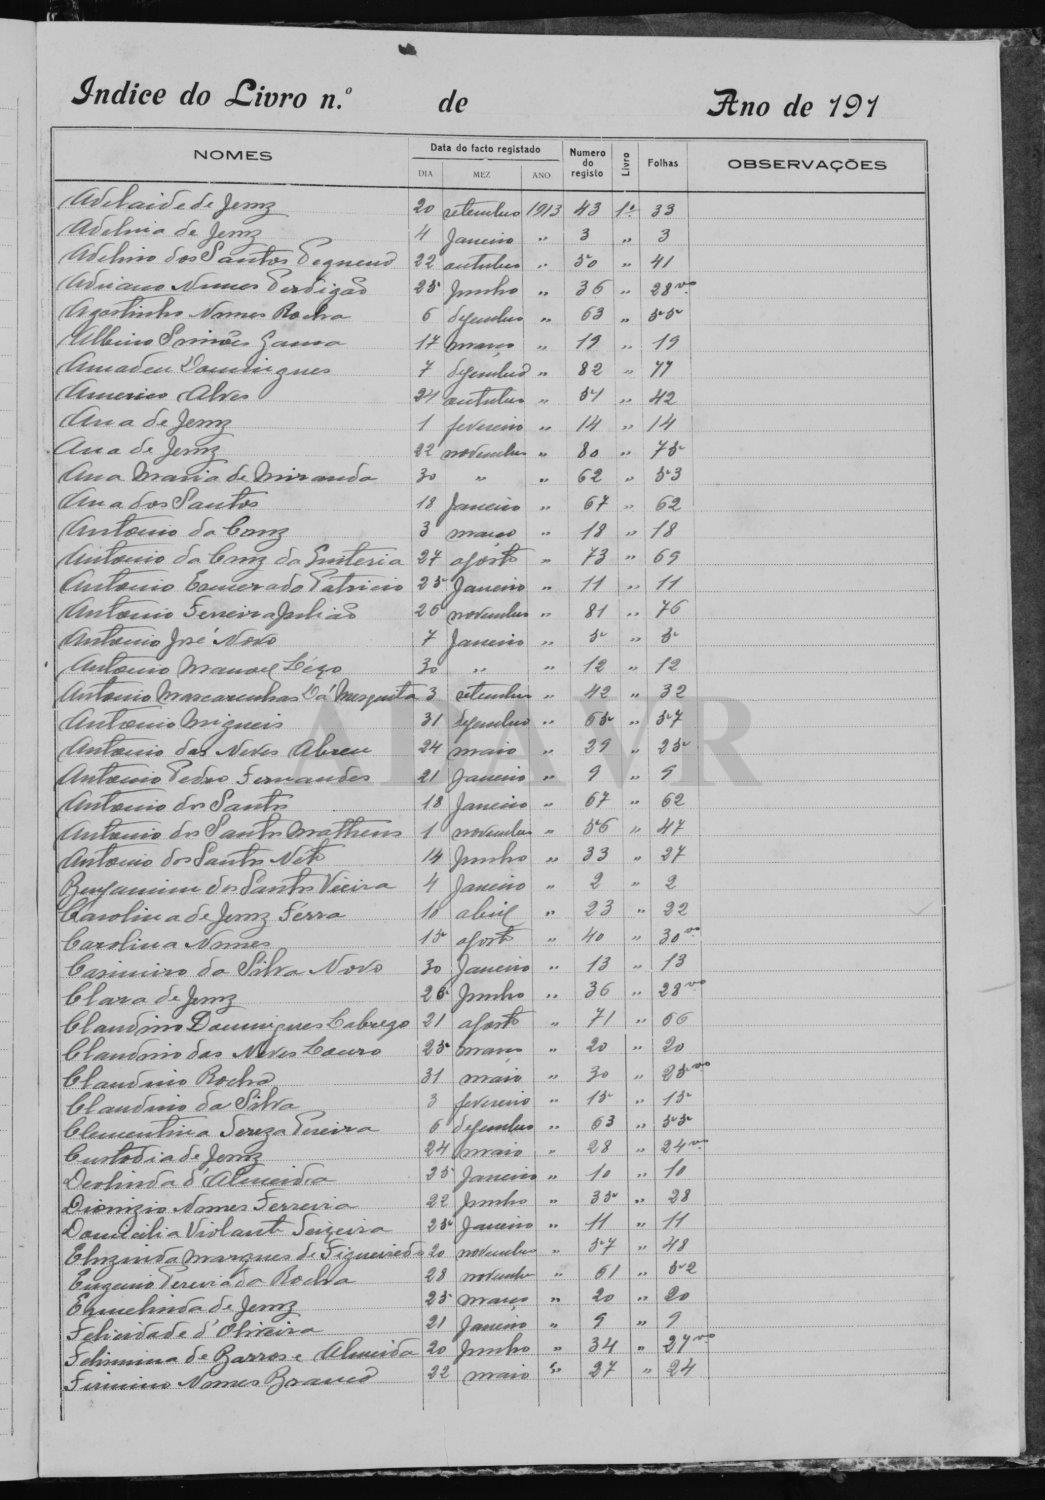 Indice do Livro n.º de Ano de 191
NOMES Data do facto registado Numero do registo Livro Folhas OBSERVAÇÕES
DIA MEZ ANO
Adelaide de Jesus 20 setembro 1913 43 1º 33
Adelina de Jesus 4 Janeiro " 3 " 3
Adelino dos Santos Pequeno 22 outubro " 50 " 41
Adriano Nunes Perdigão 25 Junho " 36 " 28 vo
Agostinho Nunes Rocha 6 dezembro " 63 " 55
Albino Simões Gama 17 março " 19 " 19
Amadeu Domingues 7 dezembro " 82 " 77
Americo Alves 24 outubro " 51 " 42
Ana de Jesus 1 fevereiro " 14 " 14
Ana de Jesus 22 novembro " 80 " 75
Ana Maria de Miranda 30 " " 62 " 53
Ana dos Santos 18 Janeiro " 67 " 62
Antonio da Cruz 3 março " 18 " 18
Antonio da Cruz da Quiteria 27 agosto " 73 " 69
Antonio Esmerado Patricio 25 Janeiro " 11 " 11
Antonio Ferreira Julião 26 novembro " 81 " 76
Antonio José Novo 7 Janeiro " 5 " 5
Antonio Manoel 30 " " 12 " 12
Antonio Mascarenhas Mesquita 3 setembro " 42 " 32
Antonio Migueis 31 dezembro " 65 " 57
Antonio das Neves Abreu 24 maio " 29 " 25
Antonio Pedro Fernandes 21 Janeiro " 9 " 9
Antonio dos Santos 18 Janeiro " 67 " 62
Antonio dos Santos Matheus 1 novembro " 56 " 47
Antonio dos Santos Neto 14 Junho " 33 " 27
Benjamim dos Santos Vieira 4 Janeiro " 2 " 2
Carolina de Jesus Férra 10 abril " 23 " 22
Carolina Nunes 15 agosto " 40 " 30 vo
Casimiro da Silva Novo 30 Janeiro " 13 " 13
Clara de Jesus 25 Junho " 36 " 28 vo
Claudino Domingues Labrego 21 agosto " 71 " 66
Claudino das Neves Louro 25 março " 20 " 20
Claudino Rocha 31 maio " 30 " 25 vo
Claudino da Silva 3 fevereiro " 15 " 15
Clementina Tereza Pereira 6 dezembro " 63 " 55
Custodia de Jesus 24 maio " 28 " 24 vo
Deolinda d'Almeida 25 Janeiro " 10 " 10
Dionizio Nunes Ferreira 22 Junho " 35 " 28
Domicilia Violante Teixeira 25 Janeiro " 11 " 11
Eluzinda Marques de Figueiredo 20 novembro " 57 " 48
Eugenio Pereira da Rocha 28 novembro " 61 " 52
Ermelinda de Jesus 25 março " 20 " 20
Felicidade d'Oliveira 21 Janeiro " 9 " 9
Felismina de Barros e Almeida 20 Junho " 34 " 27 vo
Firmino Nunes Branco 22 maio " 27 " 24
ADAVR